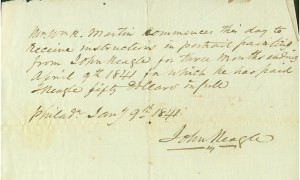 Mr. Wm. R. Martin commences this day to
receive instruction in portrait painting
from John Neagle for three months ending
April 9th 1841 for which he has paid
J Neagle fifty dollars in full
Philada. Jany 9th 1841.
John Neagle